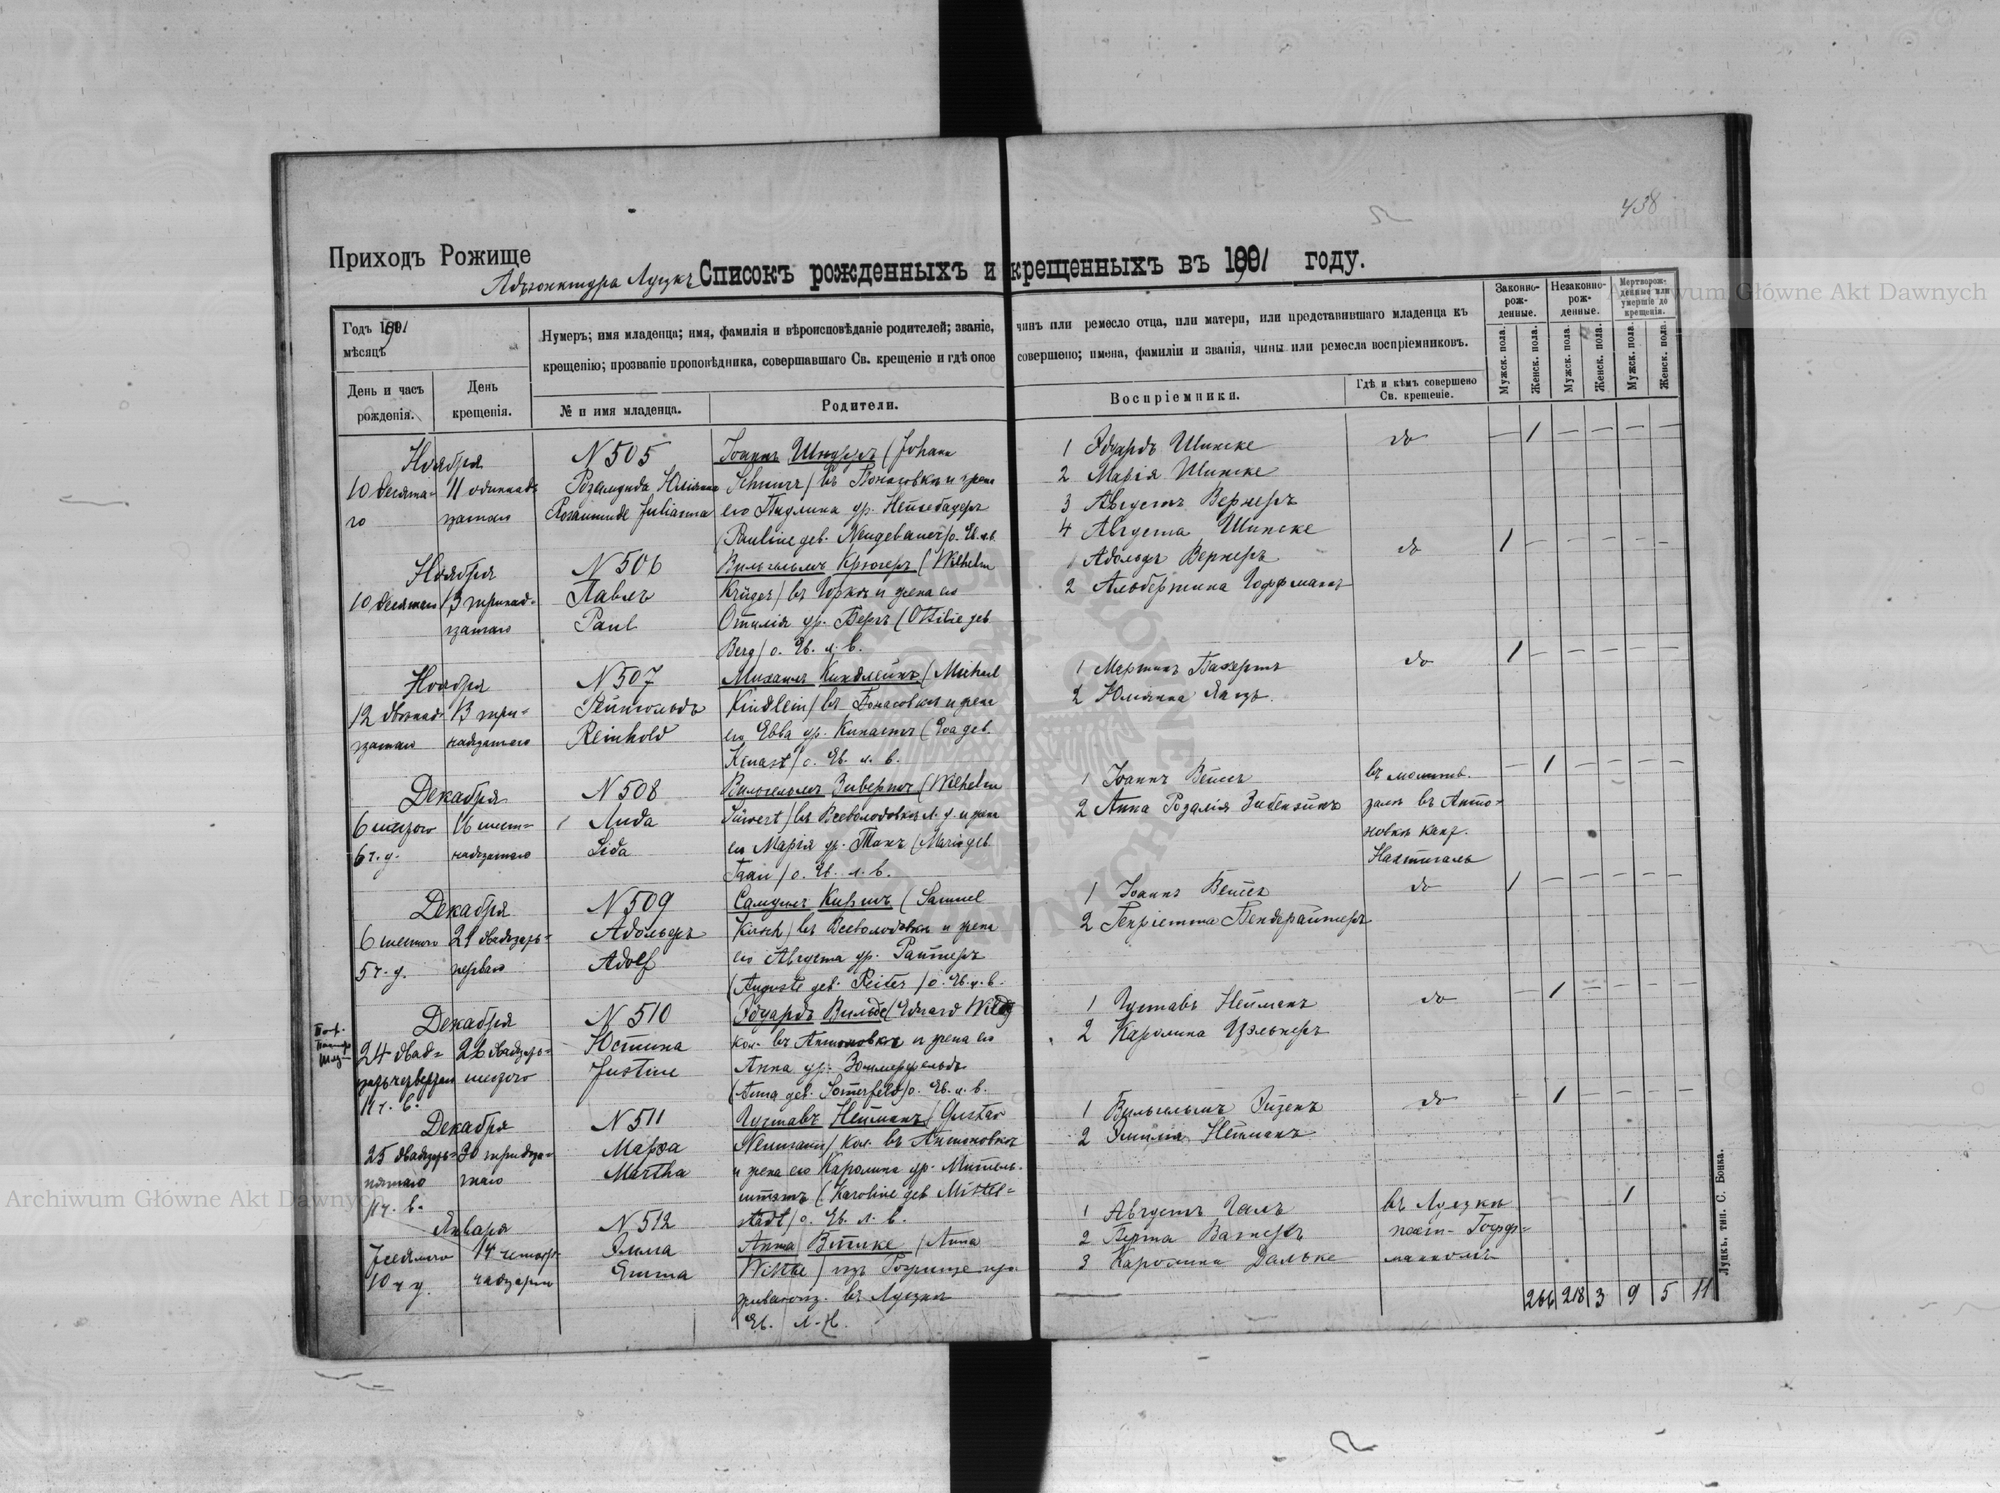 438
Приходъ Рожище
Адъюнктура Луцкъ
Списокъ рожденныхъ и крещенныхъ въ 1891 году.
Годъ 1891
мѣсяцъ
Нумеръ; имя младенца; имя, фамилія и вѣроисповѣданіе родителей; званіе, чинъ или ремесло отца, или матери, или представившаго младенца къ
крещенію; прозваніе проповѣдника, совершавшаго Св. крещеніе и гдѣ оное совершено; имена, фамиліи и званія, чины или ремесла воспріемниковъ.
Законно-рож-денные.
Незаконно-рож-денные.
Мертворож-денные или умершіе до крещенія.
День и часъ рожденія.
День крещенія.
№ и имя младенца.
Родители.
Воспріемники.
Гдѣ и кѣмъ совершено Св. крещеніе.
Мужск. пола.
Женск. пола.
Мужск. пола.
Женск. пола.
Мужск. пола.
Женск. пола.
Ноября
10 десята-
го
11 одиннад-
цатаго
N 505
Розамунда Юліанна
Rosamunde Julianna
Іоаннъ Шнурръ (Johann
Schnurr) въ Бонасовкѣ и жена
его Паулина ур. Нейгебауеръ
(Pauline geb. Neugebauer) о. Ев. л. в.
1 Эдуардъ Шинске
2 Марія Шинске
3 Августъ Вернеръ
4 Августа Шинске
do
— 1 — — — —
Ноября
10 десятаго
13 тринад-
цатаго
N 506
Павелъ
Paul
Вильгельмъ Крюгеръ (Wilhelm
Krüger) въ Горкѣ и жена его
Отилія ур. Бергъ (Ottilie geb.
Berg) о. Ев. л. в.
1 Адольфъ Вернеръ
2 Альбертина Гоффманъ
do
1 — — — — —
Ноября
12 двѣнад-
цатаго
13 три-
надцатаго
N 507
Рейнгольдъ
Reinhold
Михаилъ Киндлейнъ (Michael
Kindlein) въ Бонасовкѣ и жена
его Ева ур. Кинастъ (Eva geb.
Kinast) о. Ев. л. в.
1 Мартинъ
2 Юліанна
do
1 — — — — —
Декабря
6 шестого
6 ч. у.
16 шест-
надцатаго
N 508
Лида
Lida
Вильгельмъ Зивертъ (Wilhelm
Siewert) въ Всеволодовкѣ и жена
его Марія ур. Танъ (Marie geb.
Taan) о. Ев. л. в.
1 Іоаннъ
2 Анна Розалія
въ молитв.
залѣ въ Анто-
новкѣ кант.
Нахтигаль
— 1 — — — —
Декабря
6 шестого
5 ч. у.
21 двадцать
перваго
N 509
Адольфъ
Adolf
Самуилъ Киршъ (Samuel
Kirsch) въ Всеволодовкѣ и жена
его Августа ур. Райтеръ
(Auguste geb. Reiter) о. Ев. л. в.
1 Іоаннъ
2 Генріетта Бендерайтеръ
do
1 — — — — —
Декабря
24 двад-
цать четвертаго
11 ч. в.
26 двадцать
шестого
N 510
Юстина
Justine
Эдуардъ Вильде (Eduard Wilde)
кол. въ Антоновкѣ и жена его
Анна ур. Зоммерфельдъ
(Anna geb. Somerfeld) о. Ев. л. в.
1 Густавъ Нейманъ
2 Каролина Цэльнеръ
do
— 1 — — — —
Декабря
25 двадцать
пятаго
11 ч. в.
30 тридца-
таго
N 511
Марѳа
Martha
Густавъ Нейманъ (Gustav
Neumann) кол. въ Антоновкѣ
и жена его Каролина ур. Миттель-
штэтъ (Karoline geb. Mittel-
städt) о. Ев. л. в.
1 Вильгельмъ
2 Эмилія Нейманъ
do
— 1 — — — —
Января
7 седьмого
10 ч у.
14 четыр-
надцатаго
N 512
Эмма
Emma
Анна Витке (Anna
Wittke) изъ Рожище про-
живающ. въ Луцкѣ
Ев. Л.
1 Августъ Галъ
2 Берта Вагнеръ
3 Каролина Дальке
въ Луцкѣ
паст. Гофф-
манномъ
1
266 218 3 9 5 11
Луцкъ, тип. С. Бонка.
Archiwum Główne Akt Dawnych
Archiwum Główne Akt Dawnych